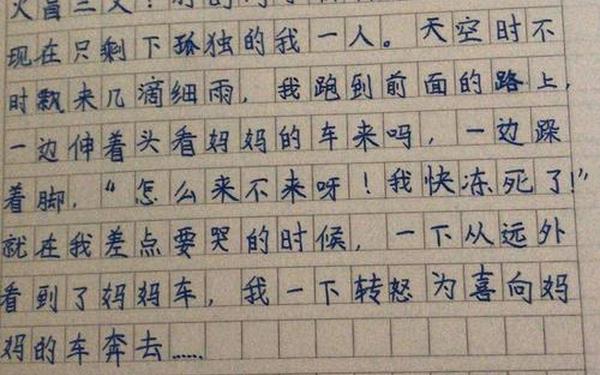 火冒三丈！
现在只剩下孤独的我一人。天空时不
时飘来几滴细雨，我跑到前面的路上，
一边伸着头看妈妈的车来吗，一边跺
着脚，“怎么来不来呀！我快冻死了！”
就在我差点要哭的时候，一下从远外
看到了妈妈车，我一下转怒为喜向妈
妈的车奔去……